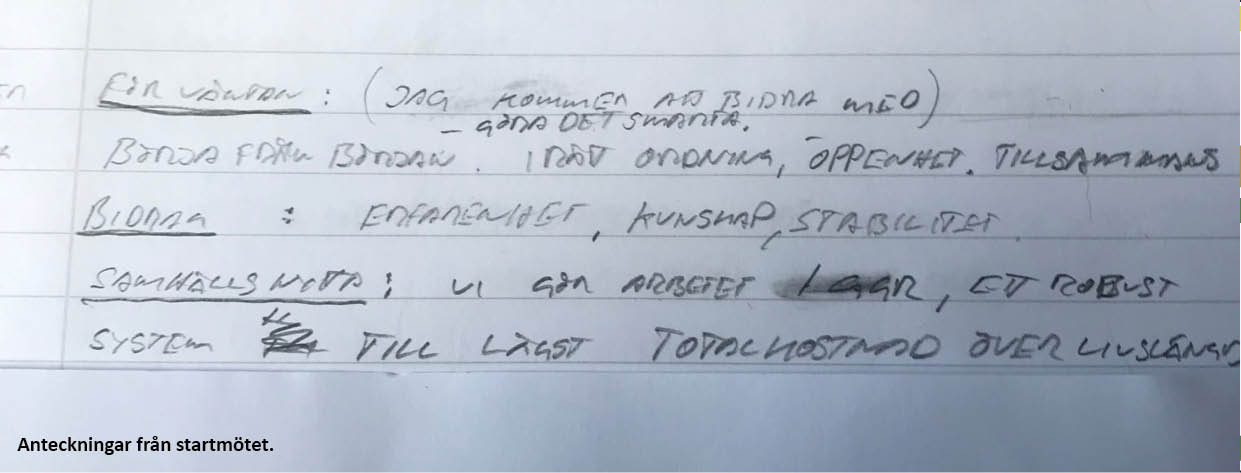 FÖRVÄNTAN : (JAG KOMMER ATT BIDRA MED)
– GÖRA DET SMARTA.
BÖRJA FRÅN BÖRJAN. I RÄTT ORDNING, ÖPPENHET. TILLSAMMANS
BIDRA : ERFARENHET, KUNSKAP, STABILITET.
SAMHÄLLSNYTTA : VI GÖR ARBETET I GGR, ETT ROBUST
SYSTEM TILL LÄGST TOTALKOSTNAD ÖVER LIVSLÄNGD
Anteckningar från startmötet.